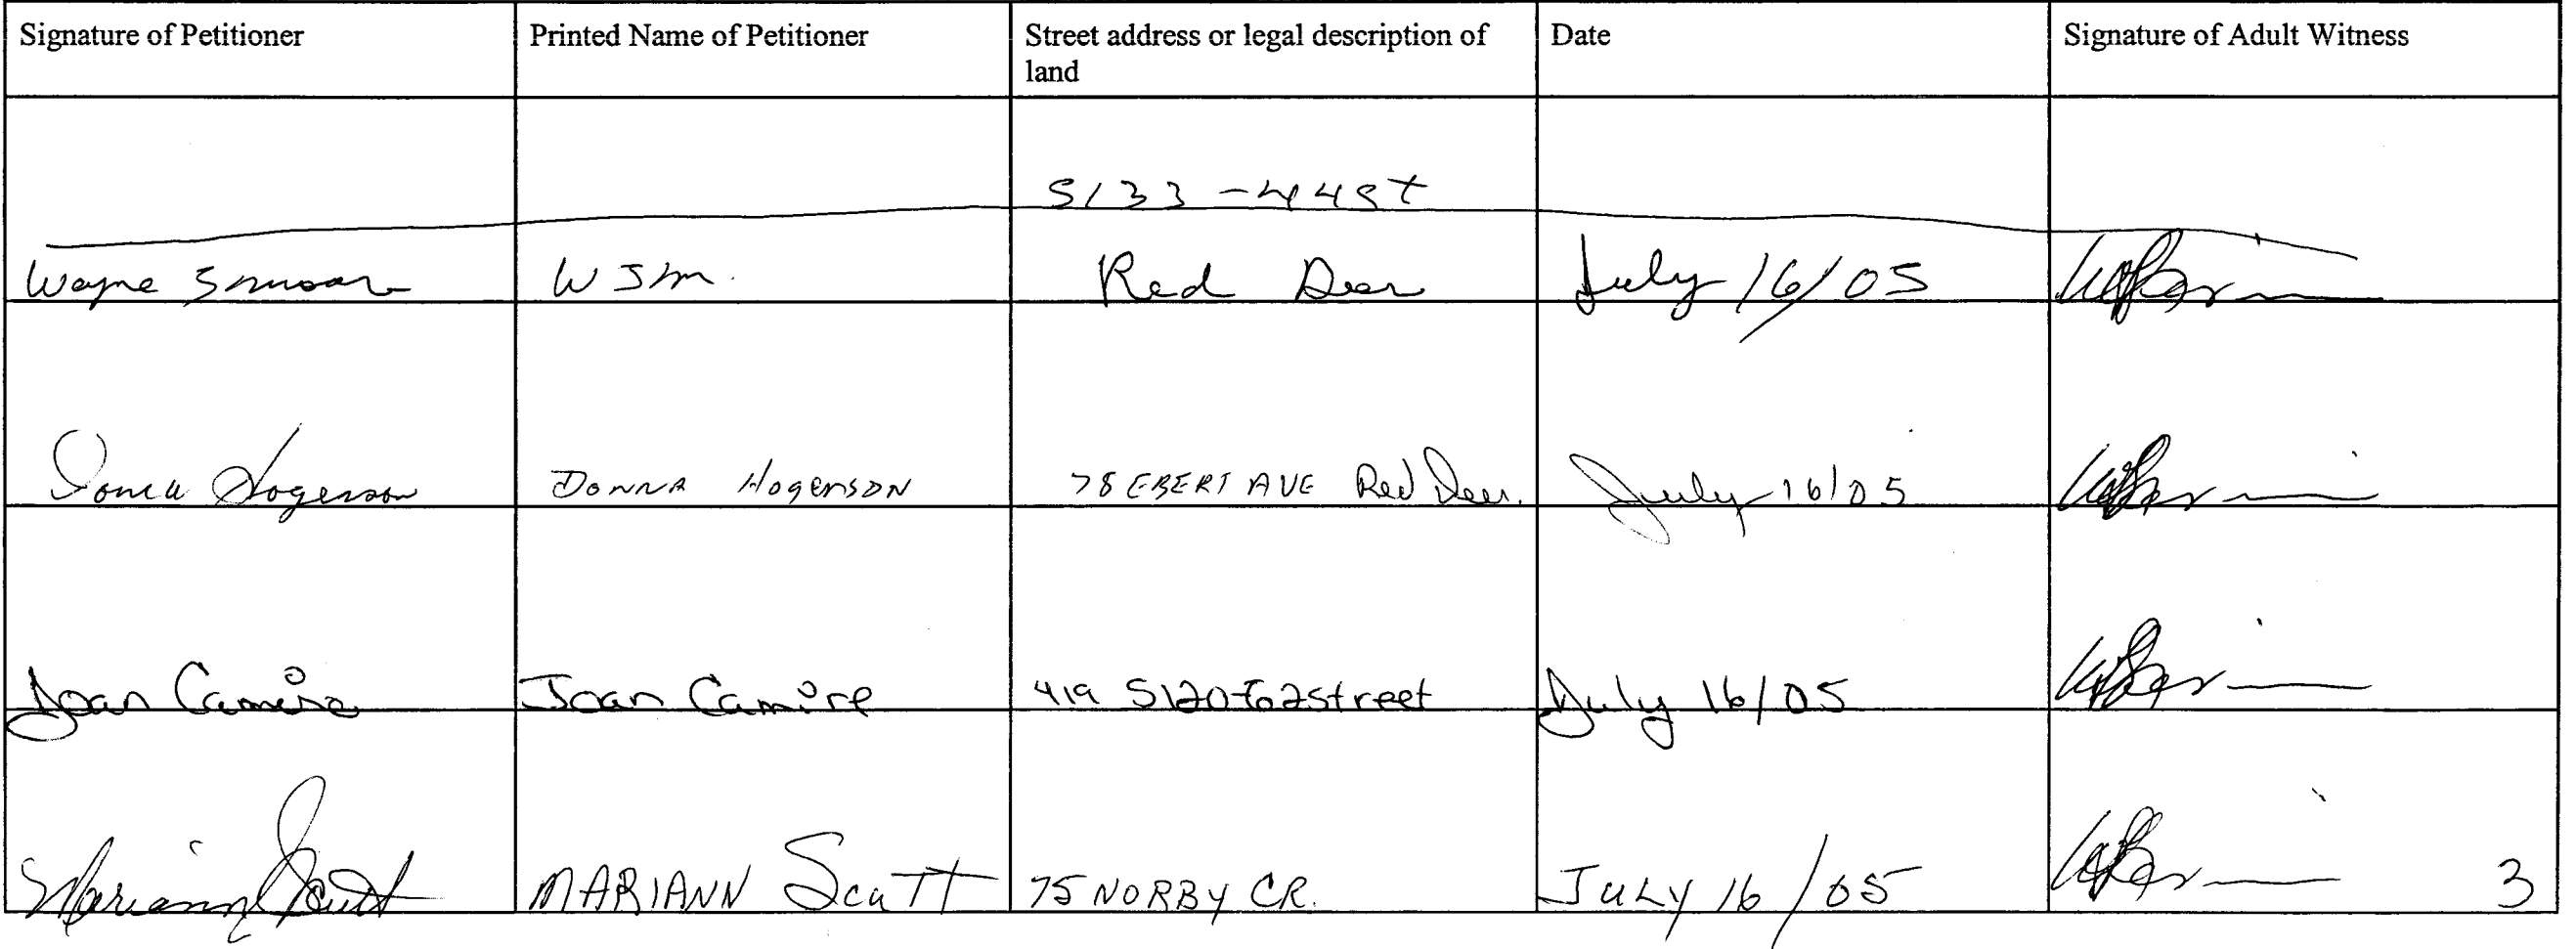 Signature of Petitioner Printed Name of Petitioner Street address or legal description of land Date Signature of Adult Witness
5133 - 44 St
Wayne W Sm. Red Deer July 16/05
Donna Hogerson DONNA HogersON 78 EBERT AVE Red Deer. July 16/05
Joan Camire Joan Camire 419 5120-62 street July 16/05
Mariann Scutt MARIANN ScuTT 75 NORBY CR. JULY 16/05
3